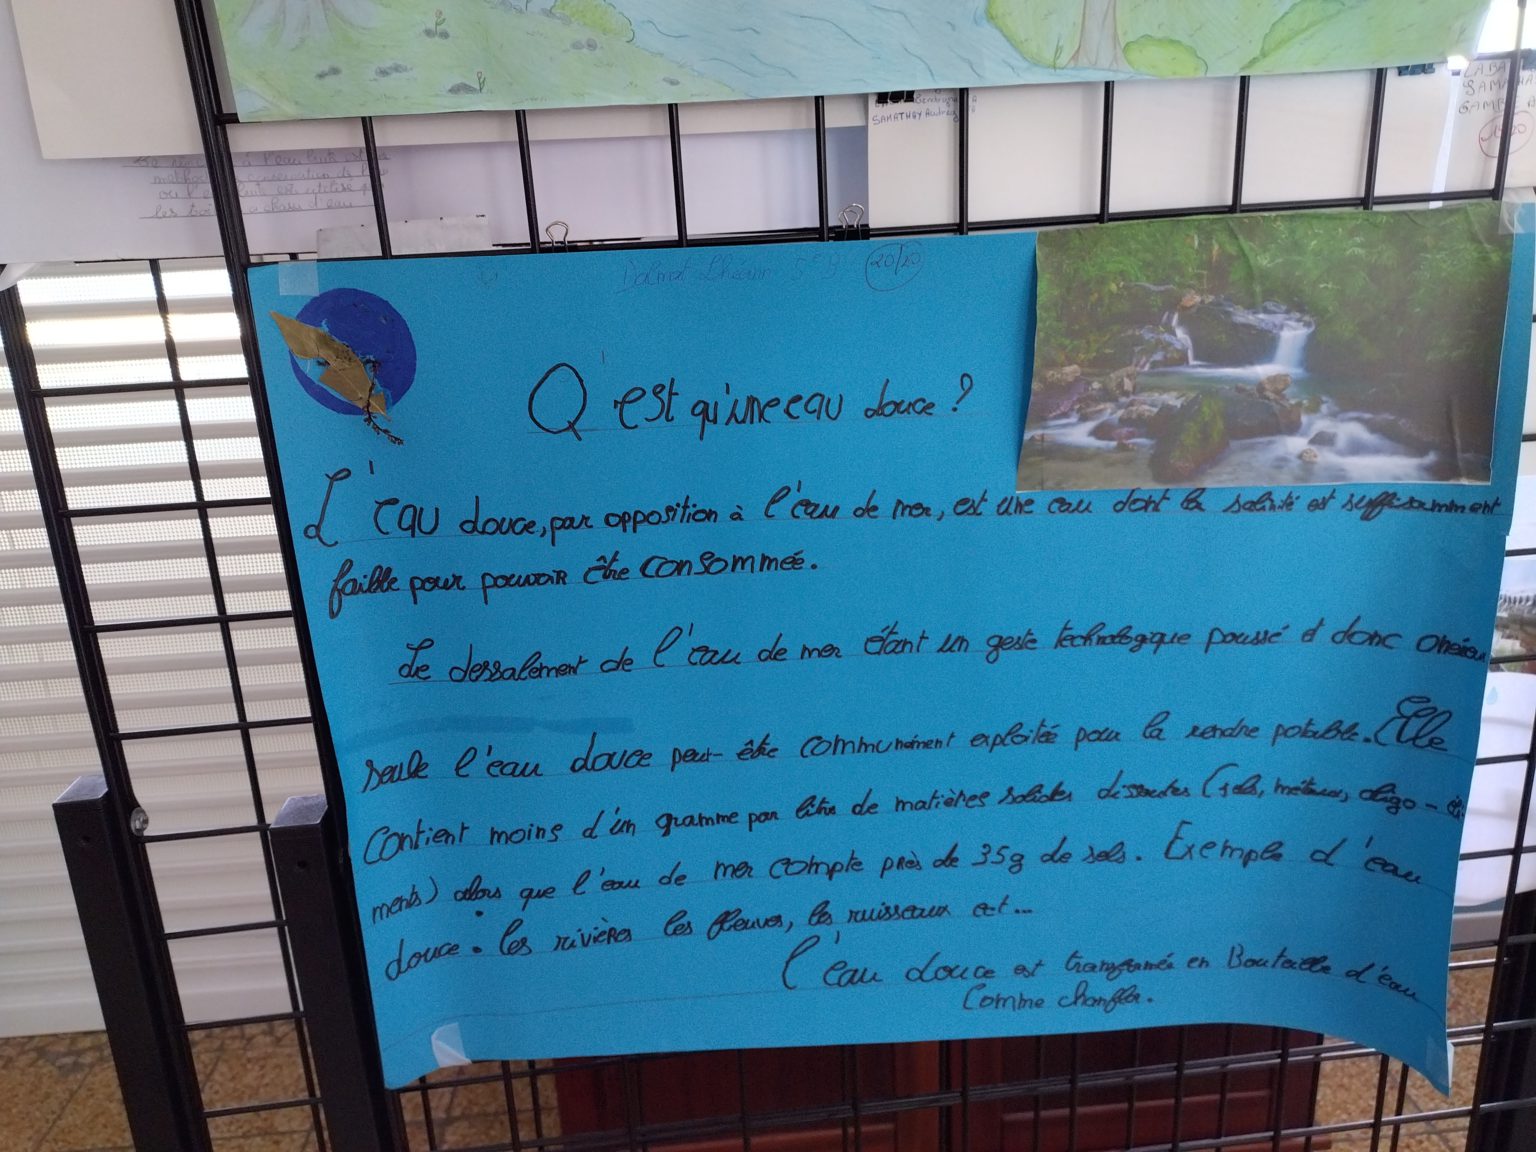 SAMATHAY Audrey
20/20
Q'est qu'une eau douce ?
L'eau douce, par opposition à l'eau de mer, est une eau dont la salinité est suffisamment
faible pour pouvoir être consommée.
Le dessalement de l'eau de mer étant un geste technologique poussé et donc onéreux
seule l'eau douce peut-être communément exploitée pour la rendre potable. Elle
contient moins d'un gramme par litre de matières solides dissoutes (sels, métaux, oligo-élé-
ments) alors que l'eau de mer compte près de 35g de sels. Exemple d'eau
douce : les rivières les fleuves, les ruisseaux ect...
l'eau douce est transformée en Bouteille d'eau
Comme chanflor.